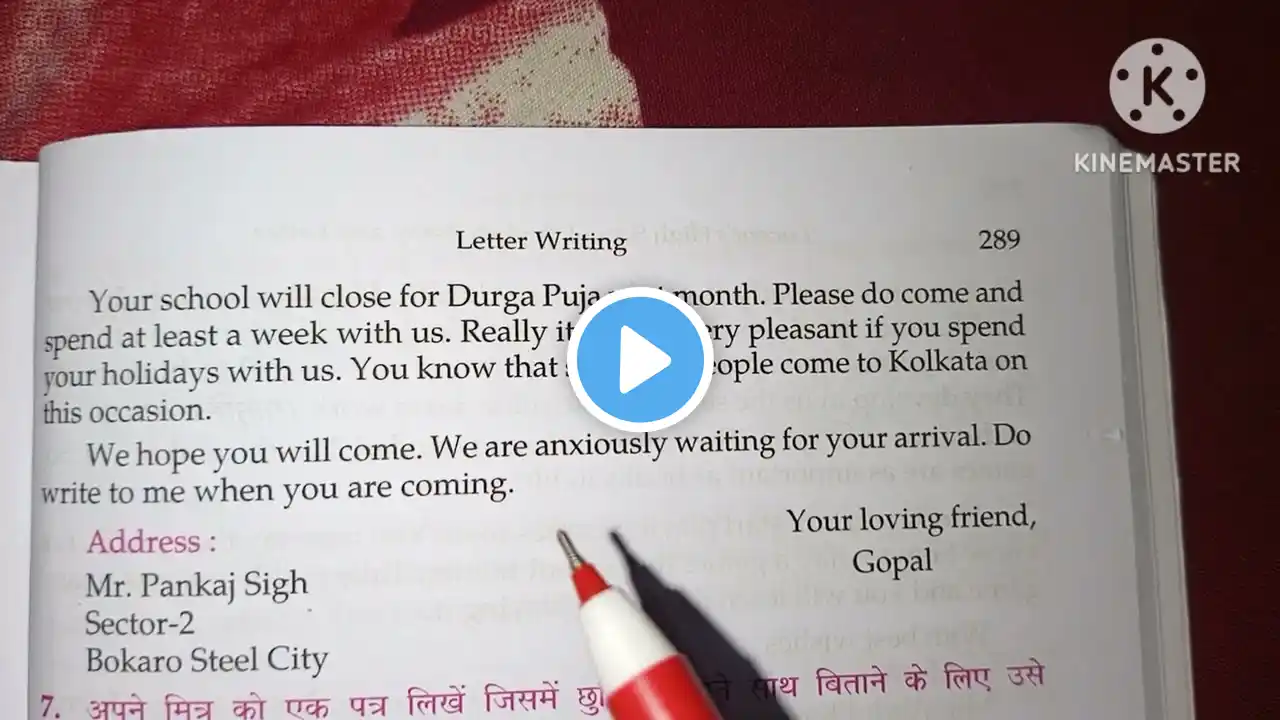 K
KINEMASTER
Letter Writing 289
Your school will close for Durga Puja month. Please do come and
spend at least a week with us. Really it ery pleasant if you spend
your holidays with us. You know that eople come to Kolkata on
this occasion.
We hope you will come. We are anxiously waiting for your arrival. Do
write to me when you are coming.
Your loving friend,
Gopal
Address :
Mr. Pankaj Sigh
Sector-2
Bokaro Steel City
7. अपने मित्र को एक पत्र लिखें जिसमें साथ बिताने के लिए उसे